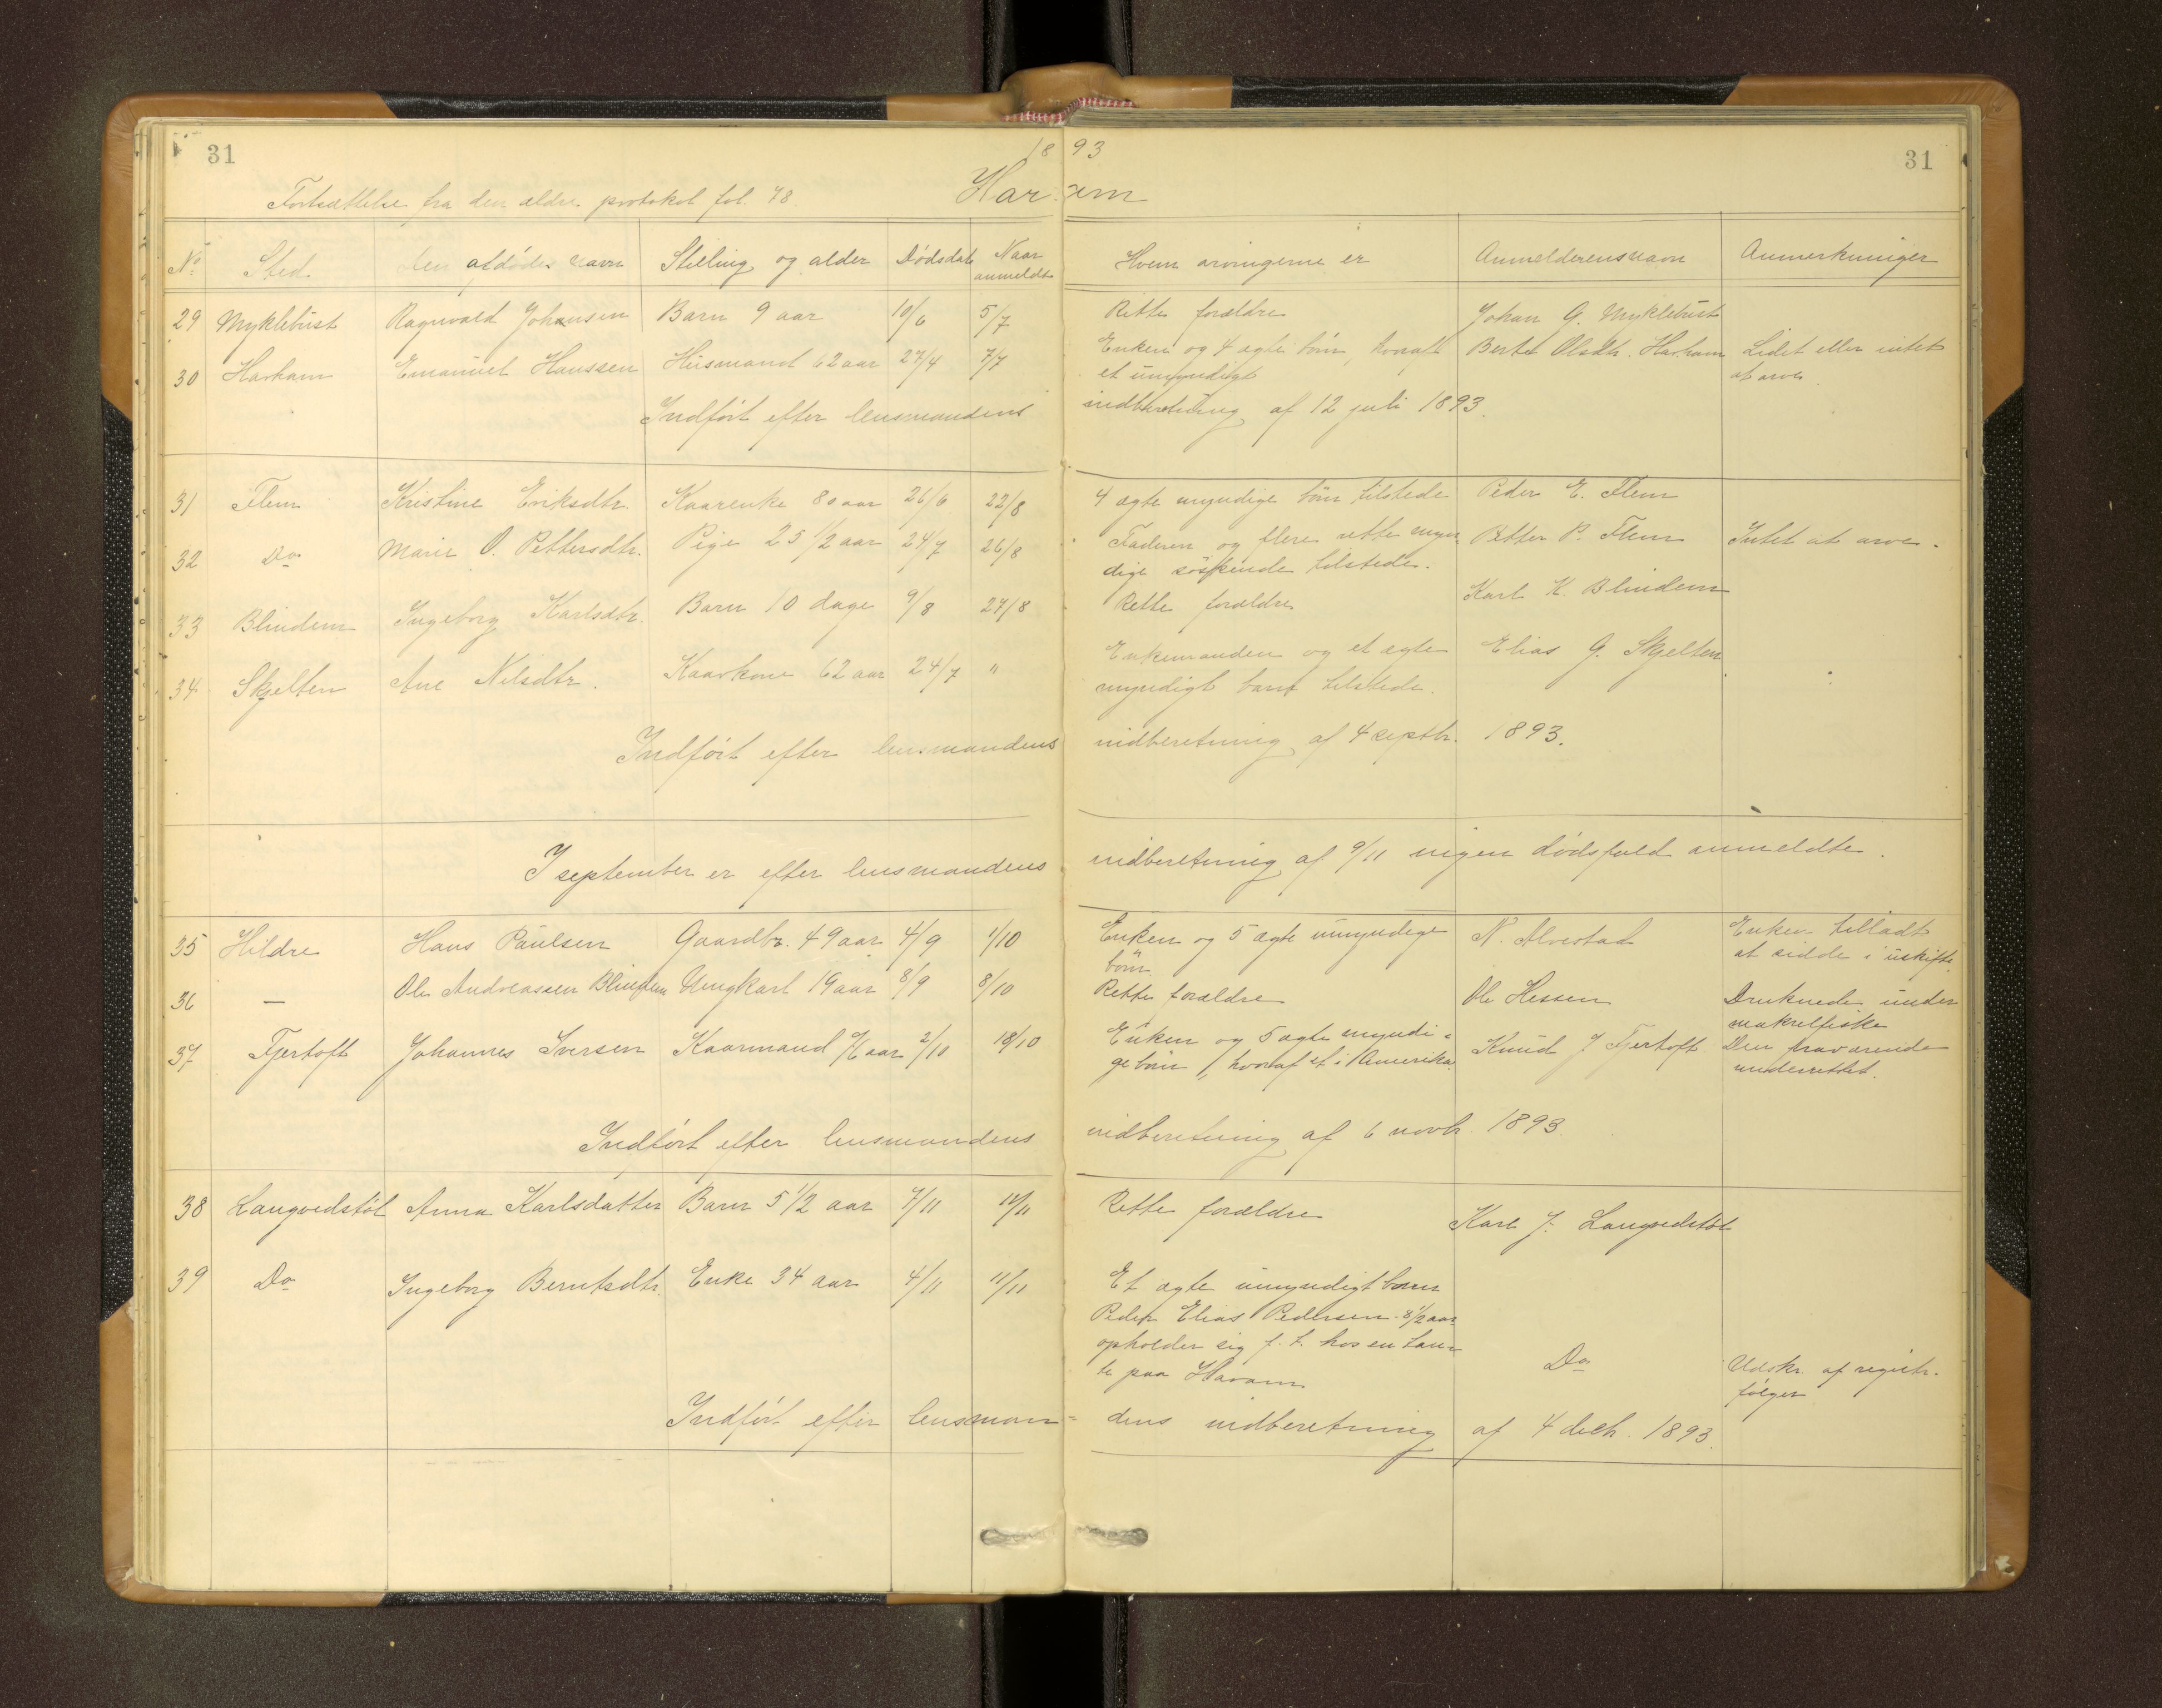 31
1893
31
Fortsættelse fra den ældre protokol fol. 78.
Haram
No Sted. Den afdødes navn Stilling og alder Dødsdat Naar anmeldt Hvem arvingerne er Anmelderens navn Anmerkninger
29 Myklebust Ragnvald Johansen Barn 9 aar 10/6 5/7 Rette forældre Johan G. Myklebust
30 Harham Emanuel Hanssen Husmand 62 aar 27/4 7/7 Enken og 4 ægte børn, hvoraf Olsdtr. Harham Lidet eller intet
et umyndigt at arve.
Indført efter lensmandens indberetning af 12 juli 1893.
31 Flem Kristine Eriksdtr. Kaarenke 80 aar 26/6 22/8 4 ægte myndige børn tilstede Peder E. Flem
32 Do Marie O. Pettersdtr. Pige 25 1/2 aar 24/7 26/8 Faderen og flere rette myn- Petter P. Flem Intet at arve.
dige søskende tilstede.
33 Blindem Ingeborg Karlsdtr. Barn 10 dage 9/8 27/8 Rette forældre Karl K. Blindem
34 Skjelten Ane Nilsdtr. Kaarkone 62 aar 24/7 " Enkemanden og et ægte Elias G. Skjelten
myndigt barn tilstede.
Indført efter lensmandens indberetning af 4 septbr. 1893.
I september er efter lensmandens indberetning af 9/11 ingen dødsfald anmeldte.
35 Hildre Hans Paulsen Gaardbr. 49 aar 4/9 1/10 Enken og 5 ægte umyndige N. Alvestad Enken tilladt
børn at sidde i uskifte.
36 — Ole Andreassen Blindem Ungkarl 19 aar 8/9 8/10 Rette forældre Ole Hessen Druknede under
makrelfiske
37 Fjertoft Johannes Iversen Kaarmand aar 2/10 18/10 Enken og 5 ægte myndi- Knud J. Fjertoft Den fraværende
ge børn, hvoraf et i Amerika. underrettet.
Indført efter lensmandens indberetning af 6 novbr. 1893.
38 Langvedstøl Anna Karlsdatter Barn 5 1/2 aar 7/11 11/11 Rette forældre Karl J. Langvedstøl
39 Do Ingeborg Berntsdtr. Enke 34 aar 4/11 11/11 Et ægte umyndigt barn
Peder Elias Pedersen 8 1/2 aar
opholder sig f. t. hos en tan-
te paa Haram Do Udskr. af registr.
følger
Indført efter lensman- dens indberetning af 4 decbr. 1893.